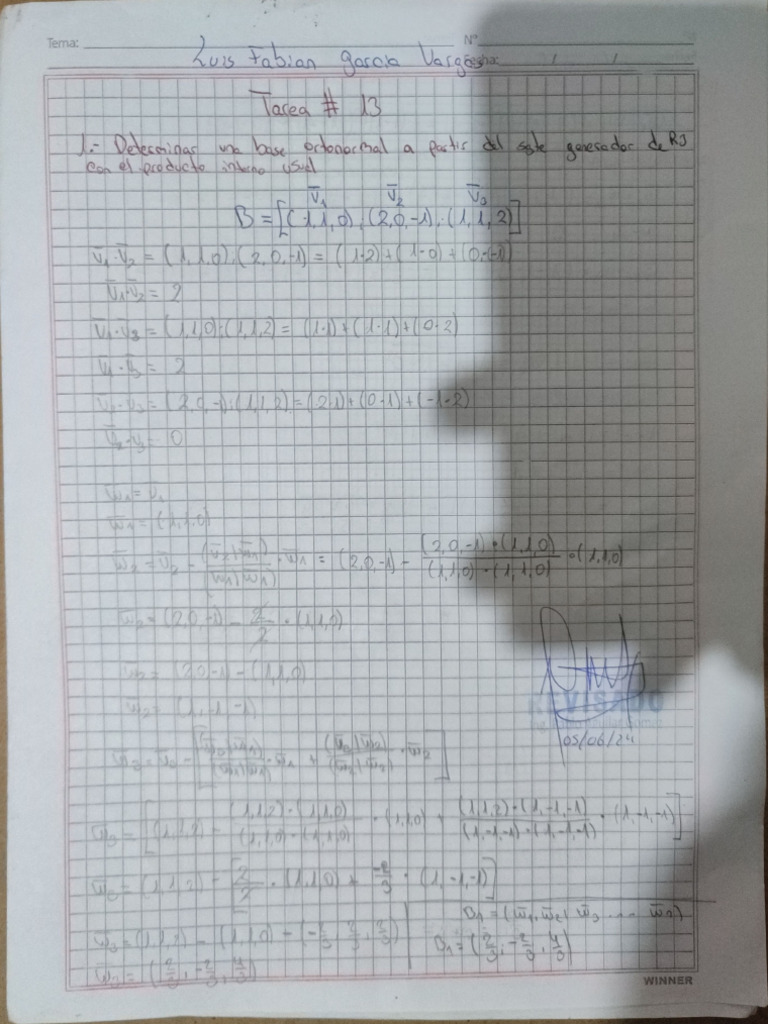 Tema: Nº
Luis Fabian Garcia Vargas Fecha: / /
Tarea # 13
1.- Determinar una base ortonormal a partir del sgte generador de R3
con el producto interno usual
V̅₁ V̅₂ V̅₃
B = [(1,1,0), (2,0,-1), (1,1,2)]
V̅₁·V̅₂ = (1,1,0)·(2,0,-1) = (1·2)+(1·0)+(0·(-1))
V̅₁·V̅₂ = 2
V̅₁·V̅₃ = (1,1,0)·(1,1,2) = (1·1)+(1·1)+(0·2)
V̅₁·V̅₃ = 2
V̅₂·V̅₃ = (2,0,-1)·(1,1,2) = (2·1)+(0·1)+(-1·2)
V̅₂·V̅₃ = 0
w̅₁ = V̅₁
w̅₁ = (1,1,0)
w̅₂ = V̅₂ - (V̅₂|w̅₁)/(w̅₁|w̅₁) · w̅₁ = (2,0,-1) - (2,0,-1)·(1,1,0)/(1,1,0)·(1,1,0) · (1,1,0)
w̅₂ = (2,0,-1) - 2/2 · (1,1,0)
w̅₂ = (2,0,-1) - (1,1,0)
w̅₂ = (1,-1,-1)
REVISADO
05/06/24
w̅₃ = V̅₃ - [(V̅₃|w̅₁)/(w̅₁|w̅₁) · w̅₁ + (V̅₃|w̅₂)/(w̅₂|w̅₂) · w̅₂]
w̅₃ = [(1,1,2) - (1,1,2)·(1,1,0)/(1,1,0)·(1,1,0) · (1,1,0) + (1,1,2)·(1,-1,-1)/(1,-1,-1)·(1,-1,-1) · (1,-1,-1)]
w̅₃ = (1,1,2) - [2/2 · (1,1,0) + -2/3 · (1,-1,-1)]
w̅₃ = (1,1,2) - (1,1,0) - (-2/3, 2/3, 2/3)
w̅₃ = (2/3, -2/3, 4/3)
B₁ = (w̅₁, w̅₂, w̅₃ ... w̅n)
B₁ = (2/3, -2/3, 4/3)
WINNER